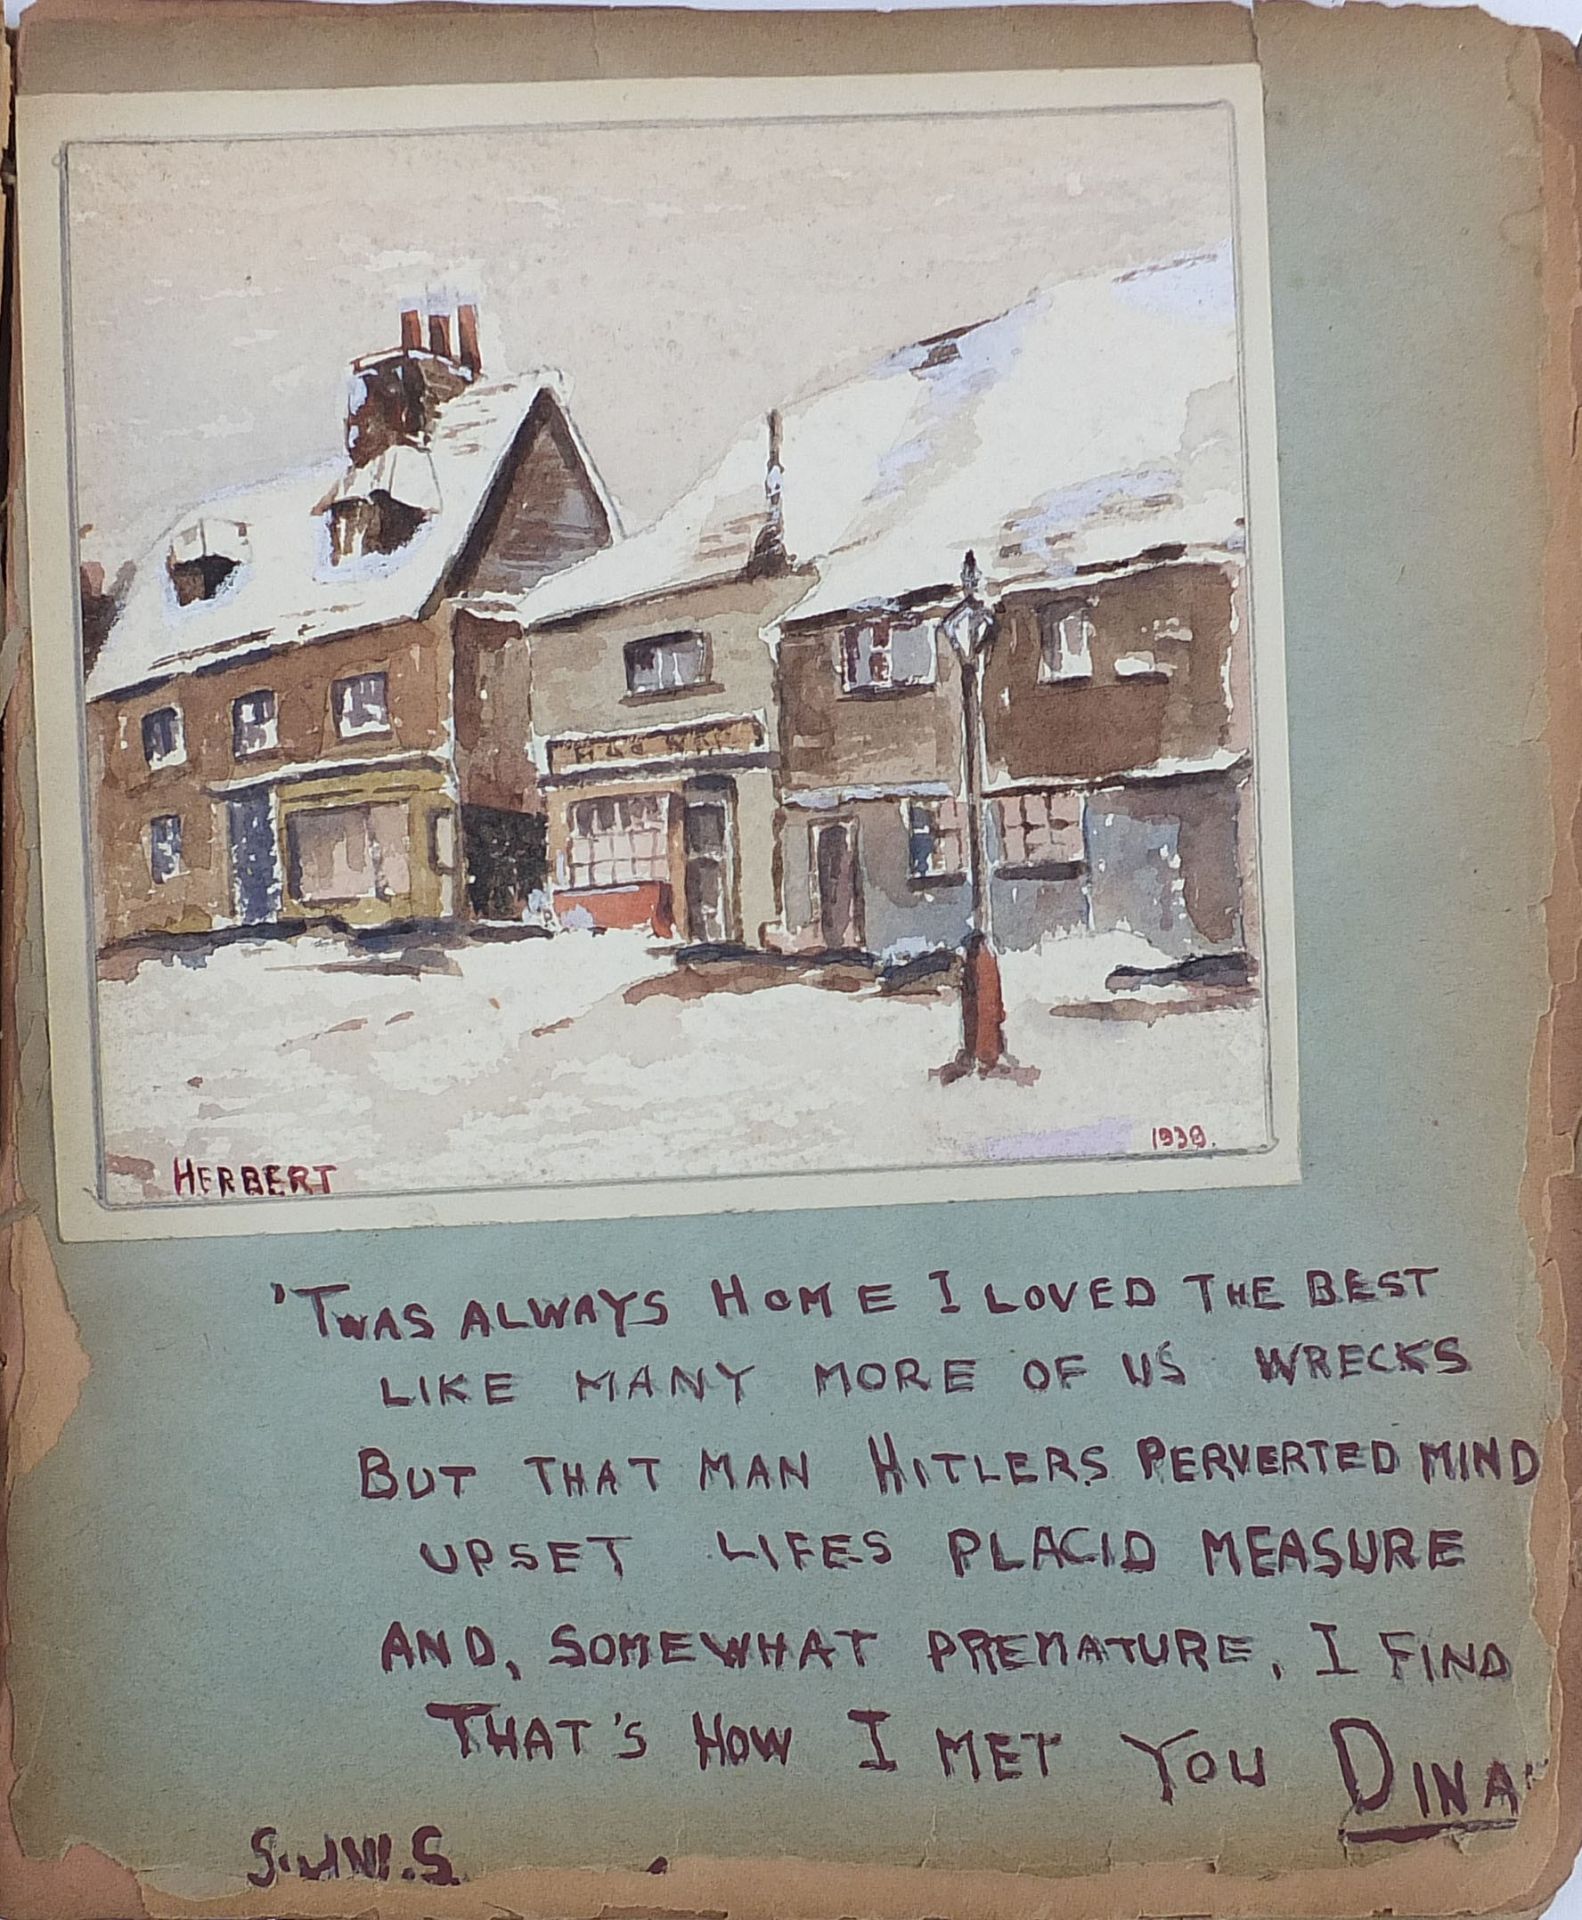 HERBERT
1939.
'TWAS ALWAYS HOME I LOVED THE BEST
LIKE MANY MORE OF US WRECKS
BUT THAT MAN HITLERS PERVERTED MIND
UPSET LIFES PLACID MEASURE
AND, SOMEWHAT PREMATURE, I FIND
THAT'S HOW I MET YOU DINA